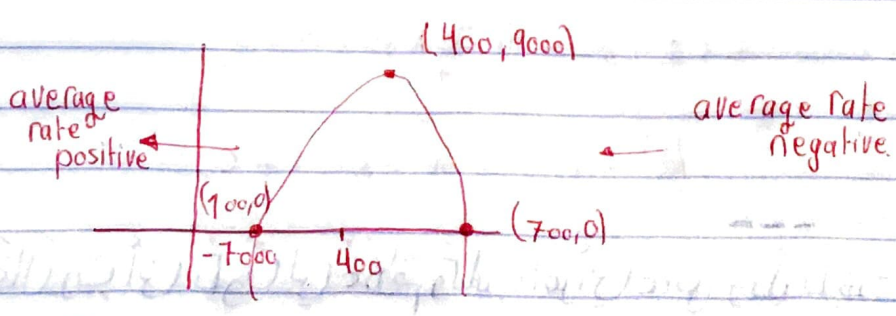 (400, 9000)
average
rate
positive
average rate
negative
(100,0)
(700,0)
-7000
400